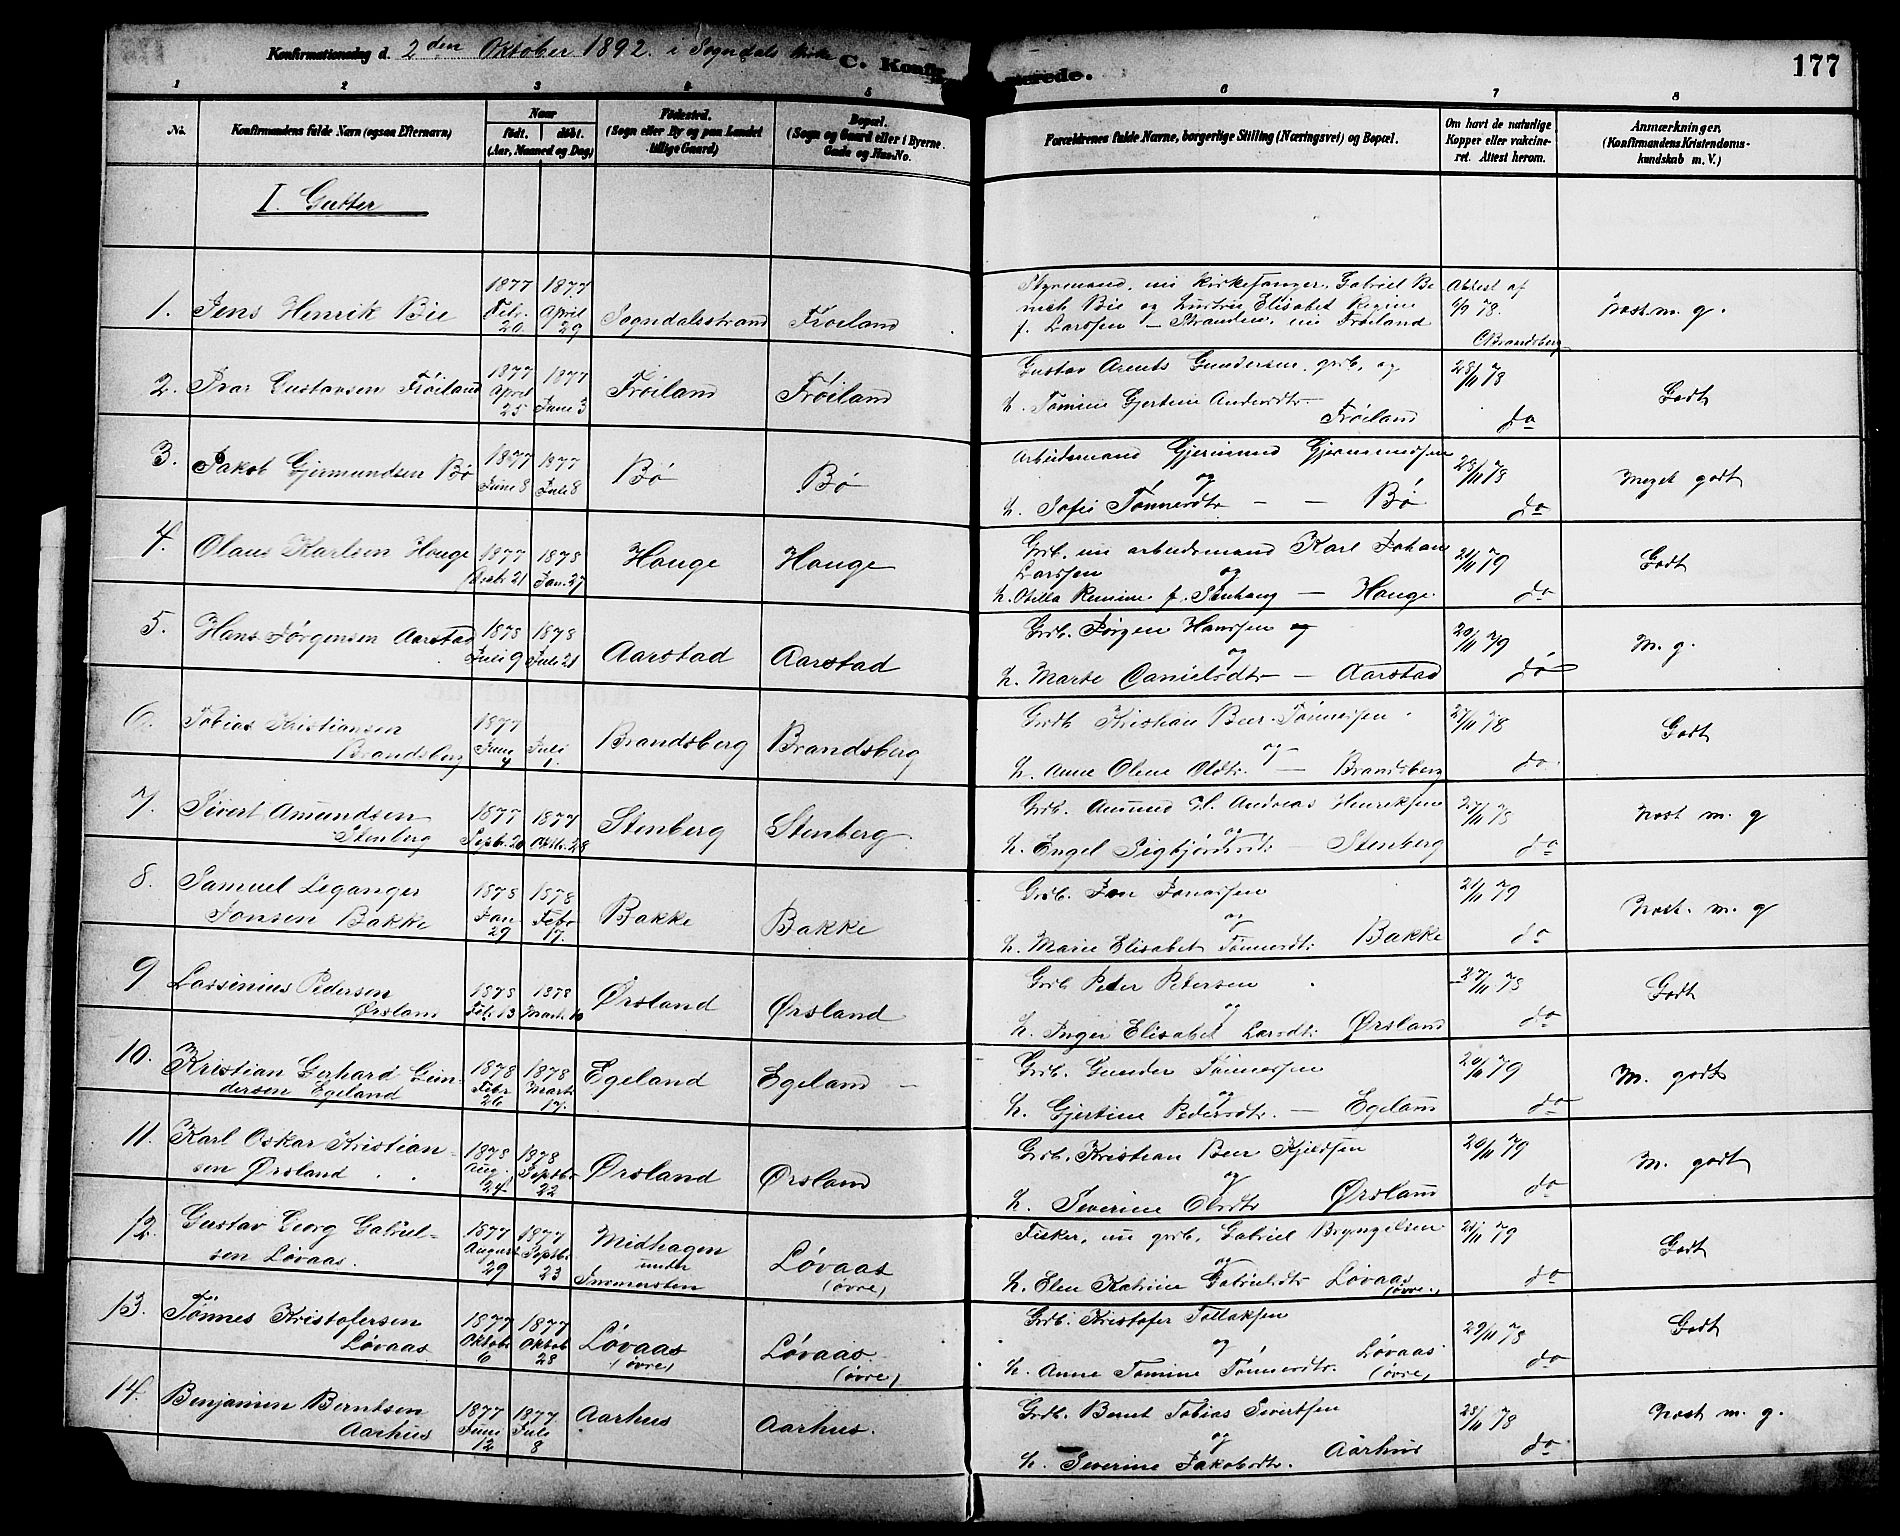 Konfirmationsdag d. 2den Oktober 1892. i Sogndals Kirke
C. Konfirmerede.
177
1 2 3 4 5 6 7 8
No.
Konfirmandens fulde Navn (ogsaa Efternavn)
Naar
født. døbt.
(Aar, Maaned og Dag)
Fødested.
(Sogn eller By og paa Landet
tillige Gaard)
Bopæl.
(Sogn og Gaard eller i Byerne
Gade og Hus-No.
Forældrenes fulde Navne, borgerlige Stilling (Næringsvei) og Bopæl.
Om havt de naturlige
Kopper eller vakcine-
ret. Attest herom.
Anmærkninger.
(Konfirmandens Kristendoms-
kundskab m. V.)
I. Gutter
1. Jens Henrik Bie
1877 Febr. 20
1877 April 29
Sogndalsstrand
Frøiland
Styrmand, nu Kirkesanger, Gabriel Be
nek Bie og Hustru Elisabet Regine
f. Larssen — Stranden, nu Frøiland
Attest af
78.
CBrandsberg
Næst m. g.
2. Ivar Gustavsen Frøiland
1877 April 25
1877 Juni 3
Frøiland
Frøiland
Gustav Arents Gundersen, grb, og
H. Tomine Gjertine Andersdtr.
Frøiland
28/11 78
do
Godt
3. Jakob Gjermundsen Bø
1877 Juni 8
1877 Juli 8
Bø
Bø
Arbeidsmand Gjermund Gjermundsen
og
H. Sofie Tønnesdtr — — Bø
28/11 78
do
Meget godt
4. Olaus Karlsen Houge
1877 Decbr. 21
1878 Jan. 27
Houge
Houge
Grb. nu arbeidsmand Karl Johan
Larssen og
H. Otilla f. — Houge.
21/11 79
do
Godt
5. Hans Jørgensen Aarstad
1878 Juli 9
1878 Juli 21
Aarstad
Aarstad
Grb. Jørgen Hanssen og
og
H. Marte Danielsdtr — Aarstad
20/11 79
do
M. g.
6. Tobias Kristiansen
Brandsberg
1877 Juni 4
Juli 1.
Brandsberg
Brandsberg
Grdb Kristian Beer Tønnessen
og
H. Anne Olene Olsdtr. — Brandsberg
27/11 78
do.
Godt
7. Sivert Amundsen
Stenberg
1877 Septbr. 20
1877 Oktbr. 28
Stenberg
Stenberg
Grb. Amund H. Andreas Henriksen
og
H. Engel Sigbjørnsdtr — Stenberg
27/11 78
do
Næst m. g
8. Samuel Leganger
Jonsen Bakke
1878 Jan 29
1878 Febr 17.
Bakke
Bakke
Grb. Jon Jonassen
og
H. Marie Elisabet Tønnesdtr. Bakke
21/11 79
do
Næst. m. g
9 Larsinius Pedersen
Ørsland
1878 Feb. 13
1878 Marts 10
Ørsland
Ørsland
Grdb Peder Petersen
og
H. Inger Elisabet Larsdtr. Ørsland
27/11 78
do
Godt
10. Kristian Gerhard Gun-
dersen Egeland
1878 Febr 26
1878 Marts 17.
Egeland
Egeland —
Grb. Gunder Tønnessen
og
H. Gjertine Pedersdtr. — Egeland
20/11 79
do
M. godt
11. Karl Oskar Kristian-
sen Ørsland
1878 Aug. 24
1878 Septbr. 22
Ørsland
Ørsland
Grb. Kristian Beer Kjeldsen
og
H. Severine Olsdtr Ørsland
20/11 79
do
M. godt
12. Gustav Georg Gabriel-
sen Løvaas.
1877 August 29
1877 Septbr. 23
Midhagen
under
Løvaas
(øvre)
Fisker, nu grb. Gabriel Bryngelsen
og
H. Elen Katrine Gabrielsdtr Løvaas
(øvre.)
21/11 79
do
Godt
13. Tønnes Kristofersen
Løvaas
1877 Oktobr 6
1877 Oktob 28
Løvaas
(øvre)
Løvaas.
(øvre)
Grdb. Kristofer Tollaksen
og
H. Anne Tomine Tønnesdtr. Løvaas
(øvre)
29/11 78
do
Godt
14. Benjamin Berntsen
Aarhus
1877 Juni 12
1877 Juli 8
Aarhus
Aarhus.
Grdb. Bernt Tobias Sivertsen
og
H. Severine Jakobsdtr. Aarhus
28/11 78
do
Næst m. g.